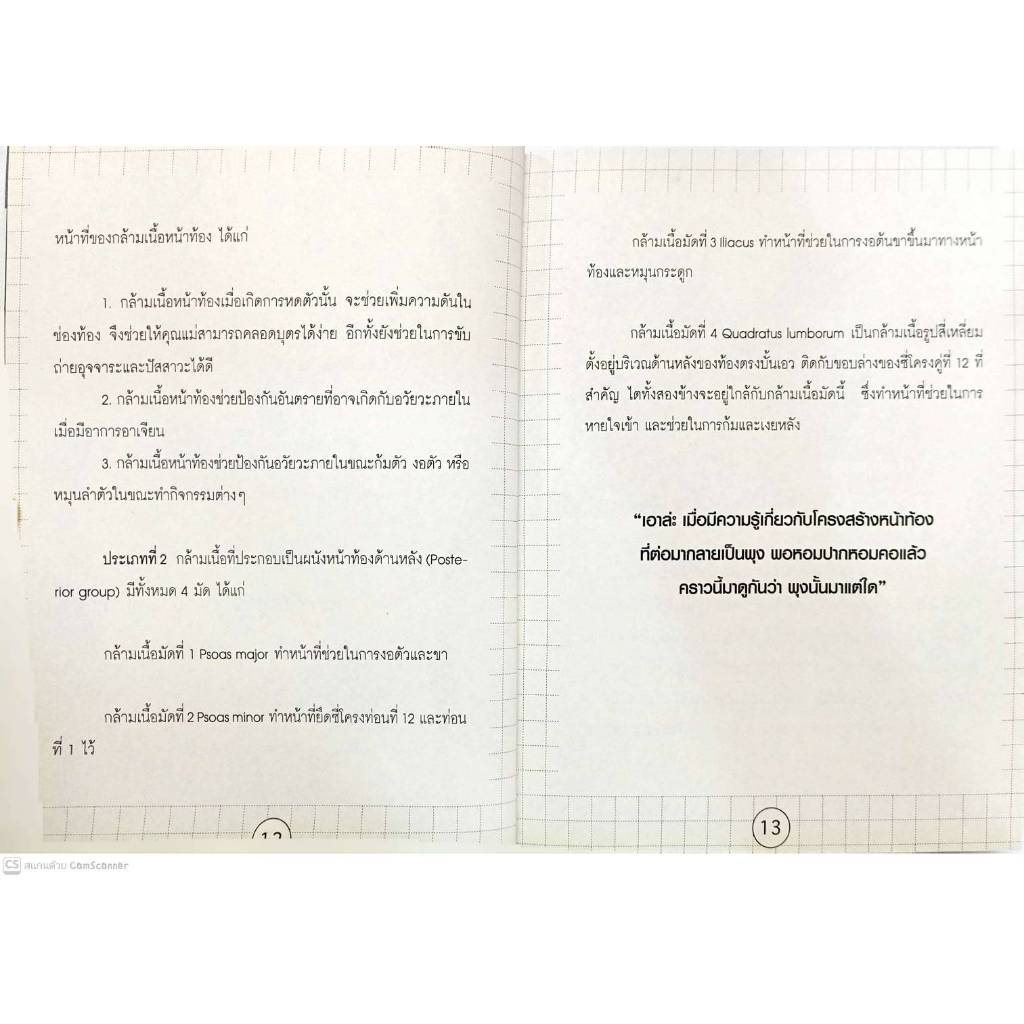 หน้าที่ของกล้ามเนื้อหน้าท้อง ได้แก่
1. กล้ามเนื้อหน้าท้องเมื่อเกิดการหดตัวนั้น จะช่วยเพิ่มความดันใน
ช่องท้อง จึงช่วยให้คุณแม่สามารถคลอดบุตรได้ง่าย อีกทั้งยังช่วยในการขับ
ถ่ายอุจจาระและปัสสาวะได้ดี
2. กล้ามเนื้อหน้าท้องช่วยป้องกันอันตรายที่อาจเกิดกับอวัยวะภายใน
เมื่อมีอาการอาเจียน
3. กล้ามเนื้อหน้าท้องช่วยป้องกันอวัยวะภายในขณะก้มตัว งอตัว หรือ
หมุนลำตัวในขณะทำกิจกรรมต่างๆ
ประเภทที่ 2 กล้ามเนื้อที่ประกอบเป็นผนังหน้าท้องด้านหลัง (Poste-
rior group) มีทั้งหมด 4 มัด ได้แก่
กล้ามเนื้อมัดที่ 1 Psoas major ทำหน้าที่ช่วยในการงอตัวและขา
กล้ามเนื้อมัดที่ 2 Psoas minor ทำหน้าที่ยึดซี่โครงท่อนที่ 12 และท่อน
ที่ 1 ไว้
12
กล้ามเนื้อมัดที่ 3 Iliacus ทำหน้าที่ช่วยในการงอต้นขาขึ้นมาทางหน้า
ท้องและหมุนกระดูก
กล้ามเนื้อมัดที่ 4 Quadratus lumborum เป็นกล้ามเนื้อรูปสี่เหลี่ยม
ตั้งอยู่บริเวณด้านหลังของท้องตรงบั้นเอว ติดกับขอบล่างของซี่โครงคู่ที่ 12 ที่
สำคัญ ไตทั้งสองข้างจะอยู่ใกล้กับกล้ามเนื้อมัดนี้ ซึ่งทำหน้าที่ช่วยในการ
หายใจเข้า และช่วยในการก้มและเงยหลัง
“เอาล่ะ เมื่อมีความรู้เกี่ยวกับโครงสร้างหน้าท้อง
ที่ต่อมากลายเป็นพุง พอหอมปากหอมคอแล้ว
คราวนี้มาดูกันว่า พุงนั้นมาแต่ใด”
13
CS สแกนด้วย CamScanner